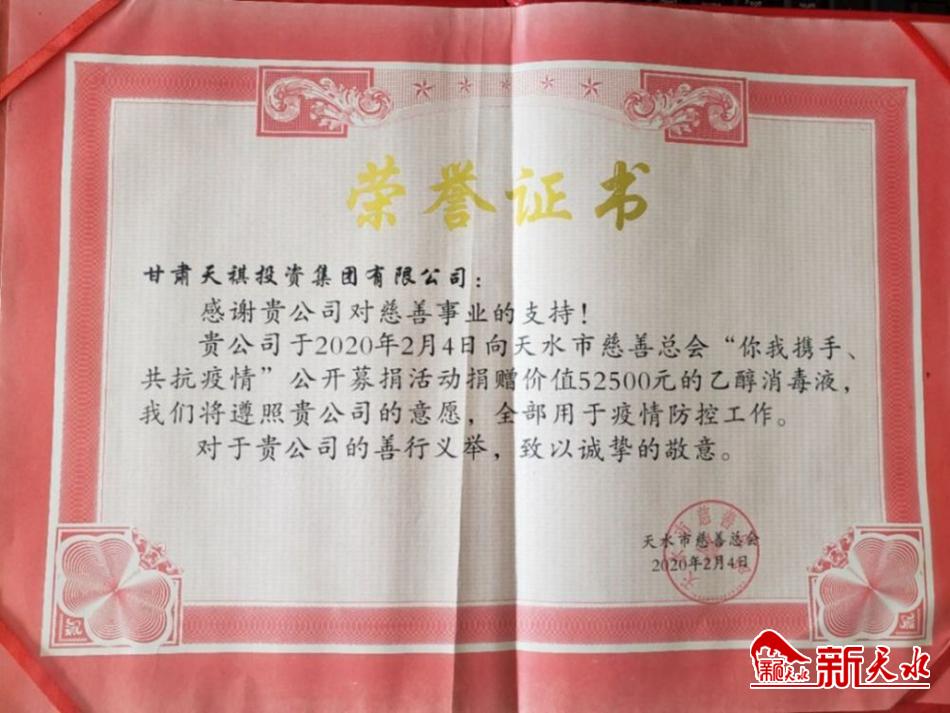 荣誉证书
甘肃天祺投资集团有限公司：
感谢贵公司对慈善事业的支持！
贵公司于2020年2月4日向天水市慈善总会“你我携手、
共抗疫情”公开募捐活动捐赠价值52500元的乙醇消毒液，
我们将遵照贵公司的意愿，全部用于疫情防控工作。
对于贵公司的善行义举，致以诚挚的敬意。
天水市慈善总会
2020年2月4日
新天水